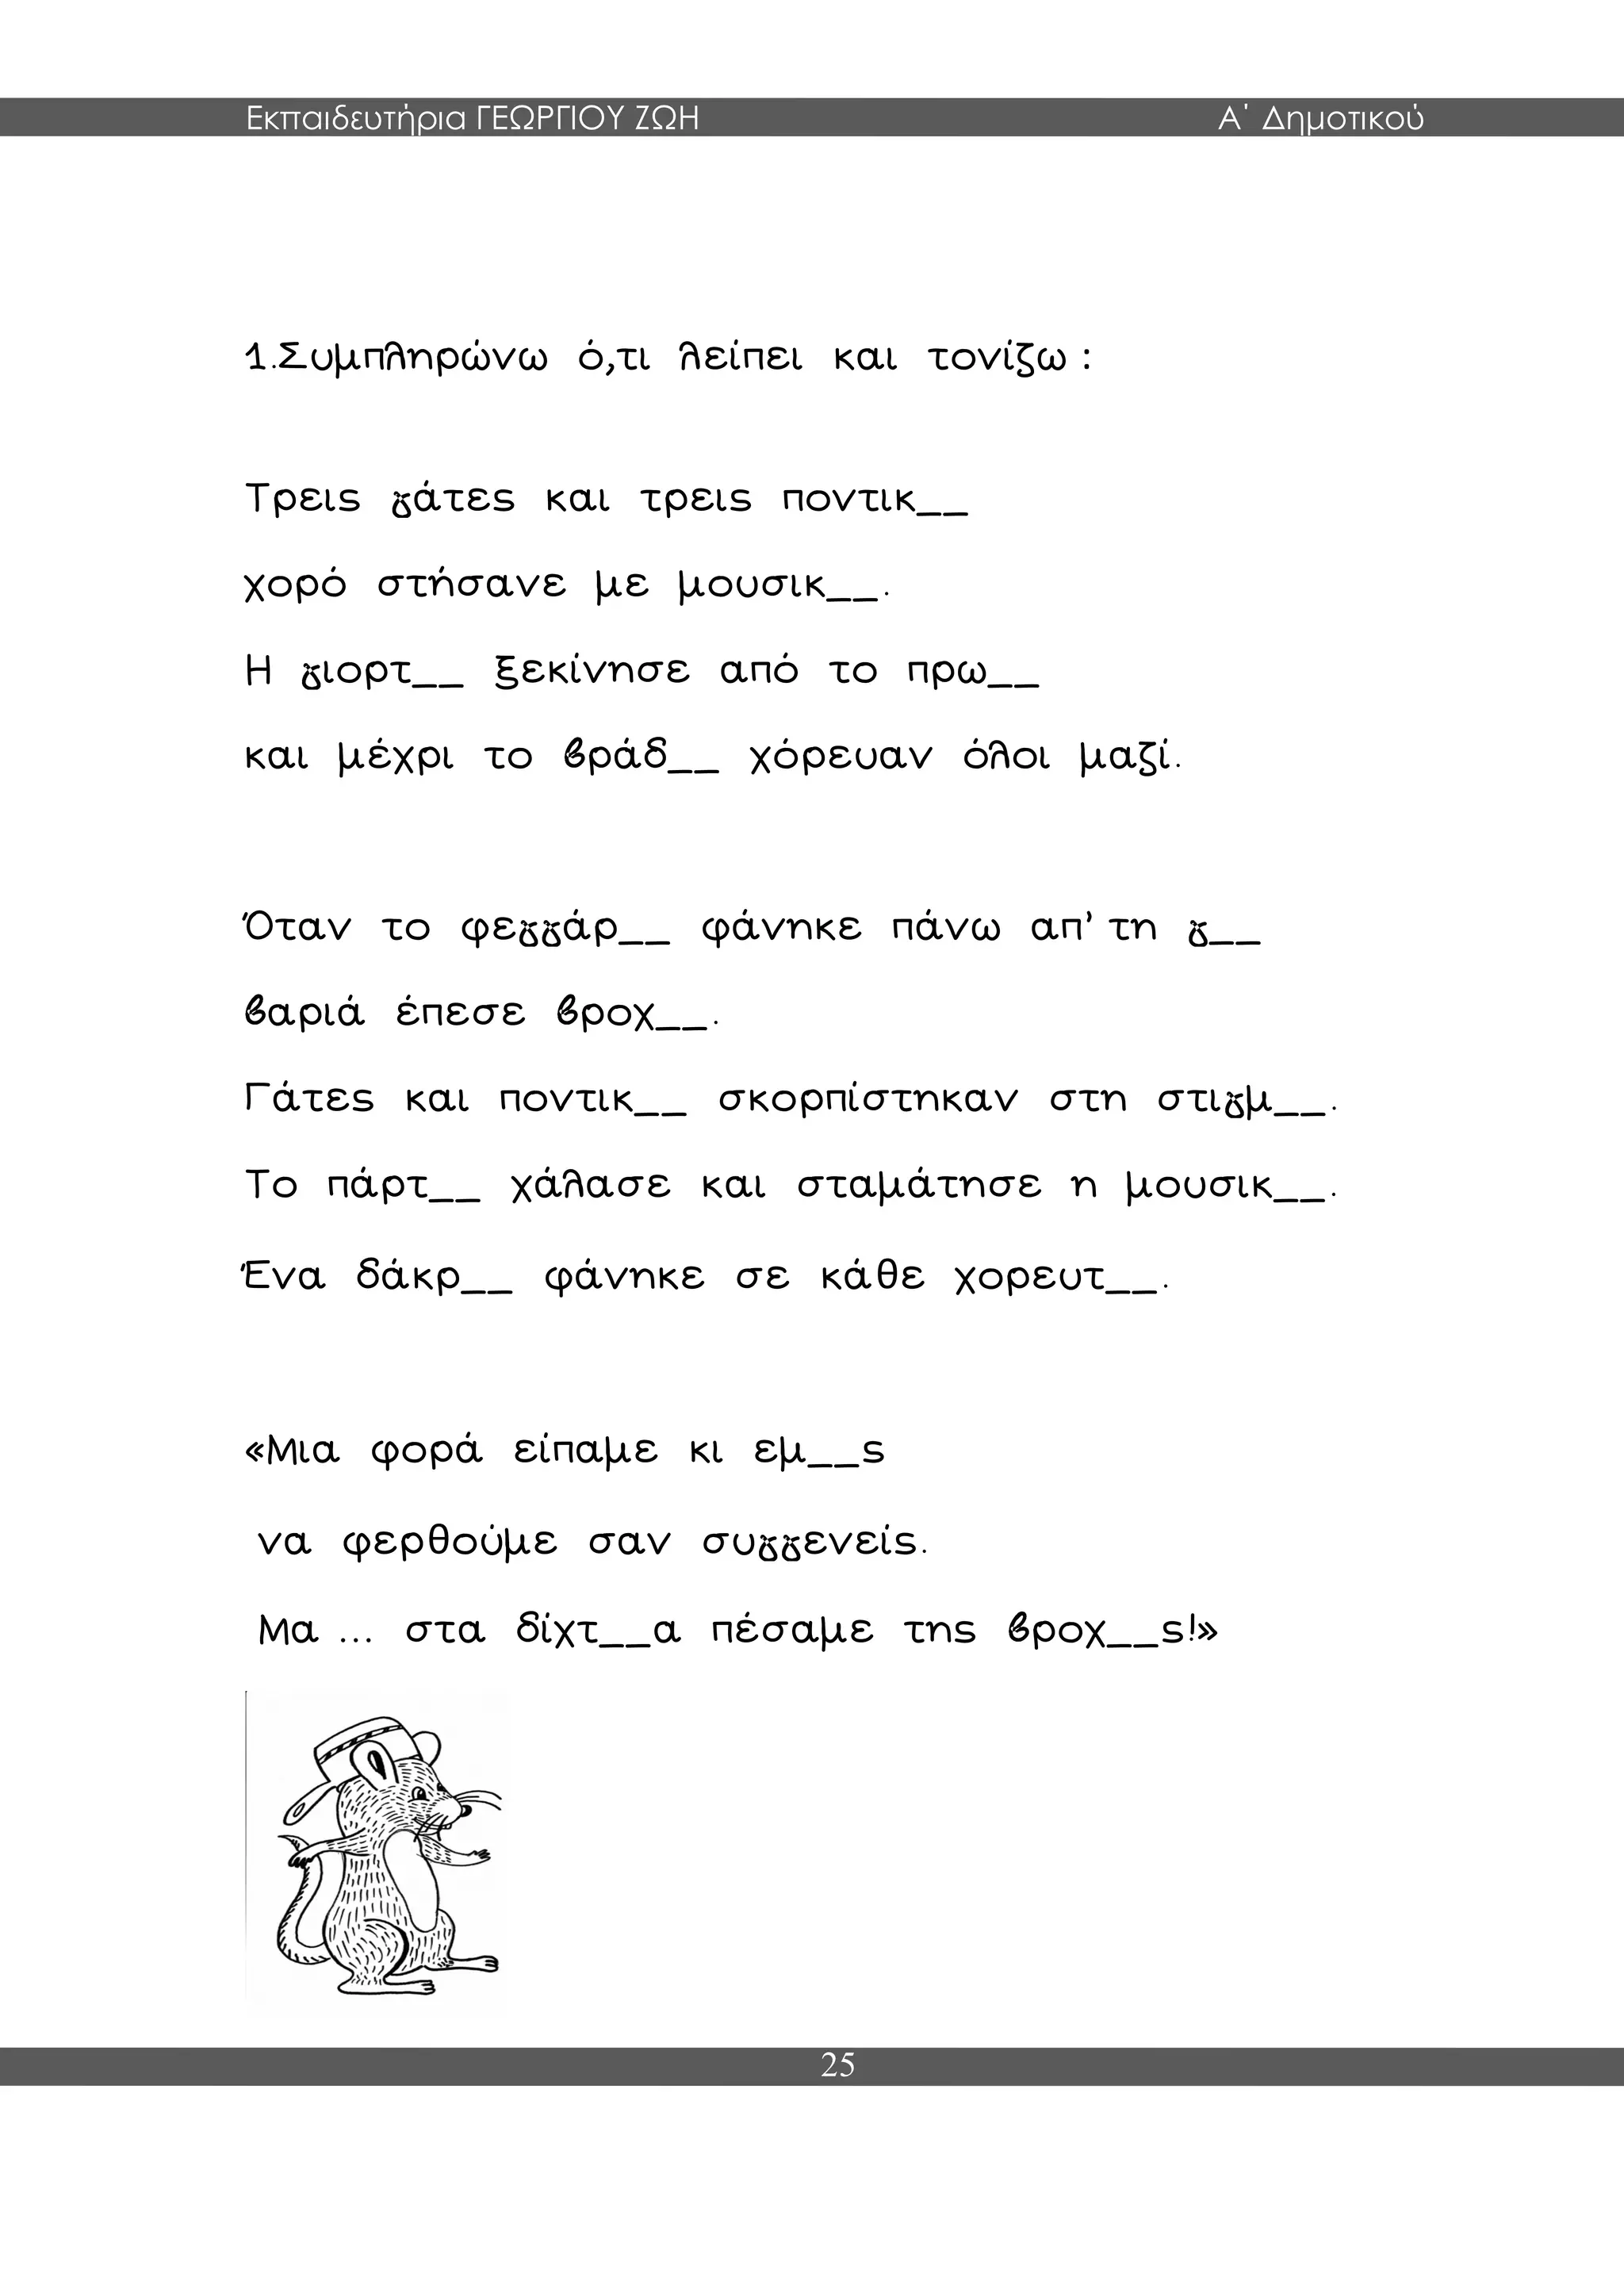 Εκπαιδευτήρια ΓΕΩΡΓΙΟΥ ΖΩΗ Α΄ Δημοτικού
1.Συμπληρώνω ό,τι λείπει και τονίζω :
Τρεις γάτες και τρεις ποντικ__
χορό στήσανε με μουσικ__.
Η γιορτ__ ξεκίνησε από το πρω__
και μέχρι το βράδ__ χόρευαν όλοι μαζί.
Όταν το φεγγάρ__ φάνηκε πάνω απ’ τη γ__
βαριά έπεσε βροχ__.
Γάτες και ποντικ__ σκορπίστηκαν στη στιγμ__.
Το πάρτ__ χάλασε και σταμάτησε η μουσικ__.
Ένα δάκρ__ φάνηκε σε κάθε χορευτ__.
«Μια φορά είπαμε κι εμ__ς
να φερθούμε σαν συγγενείς.
Μα ... στα δίχτ__α πέσαμε της βροχ__ς!»
25